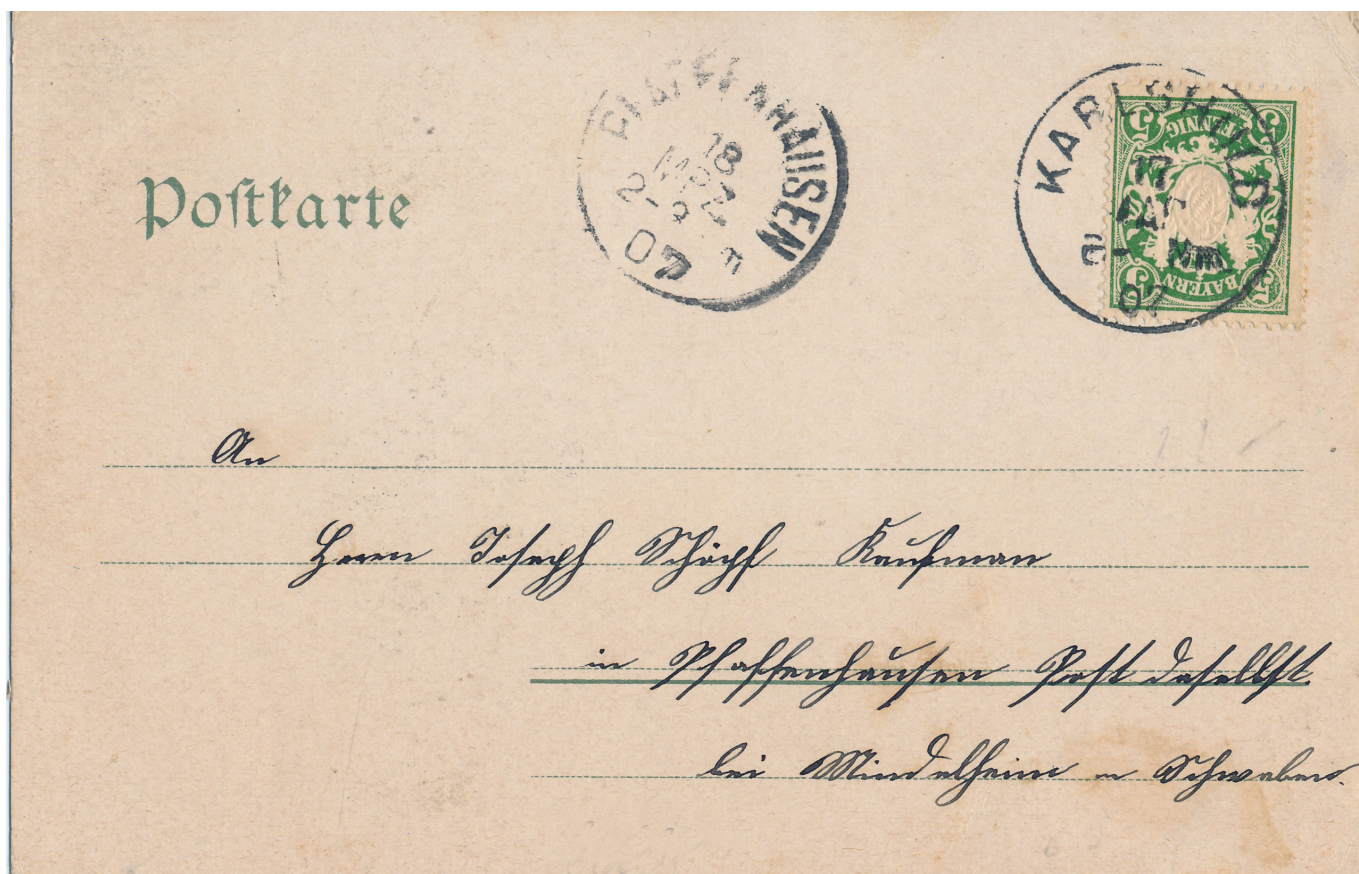 Postkarte
PFAFFENHAUSEN
18
MRZ
2-3
07
KARLSHULD
17
2- NM
07
5 PFENNIG 5
5 BAYERN 5
An
Herrn Joseph Schöpf Kaufman
in Pfaffenhausen Post daselbst
bei Mindelheim in Schwaben.